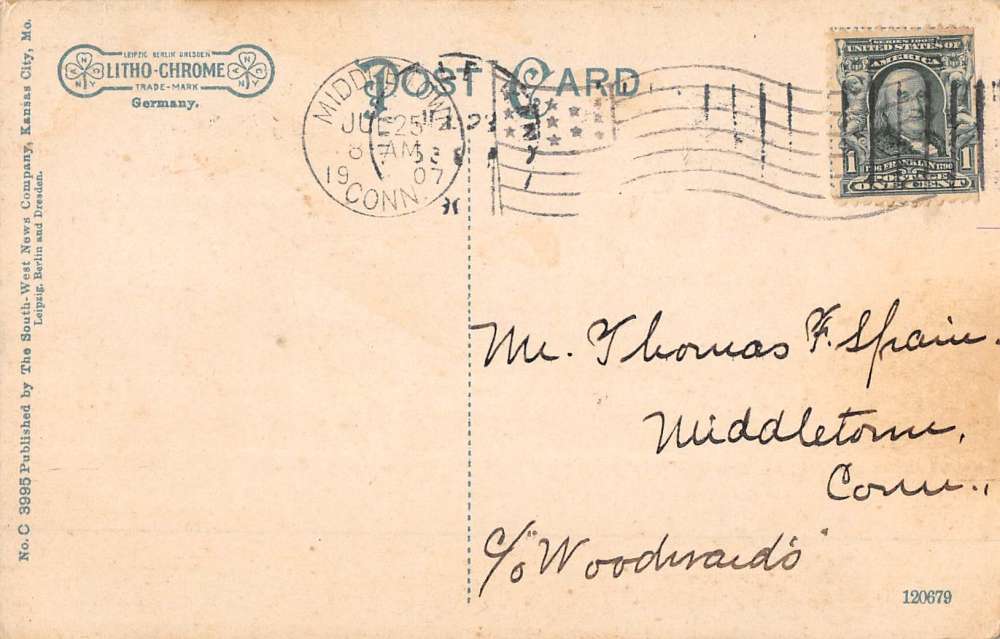 LEIPZIG BERLIN DRESDEN
LITHO-CHROME
TRADE-MARK
Germany.
POST CARD
MIDDLETOWN
JUL 25
8 AM
1907
CONN.
SERIES 1902
UNITED STATES OF
AMERICA
1 1790 FRANKLIN 1790 1
POSTAGE
ONE CENT
No. C 3995 Published by The South-West News Company, Kansas City, Mo.
Leipzig, Berlin and Dresden.
Mr. Thomas F. Spain.
Middletown,
Conn.,
c/o "Woodward's"
120679